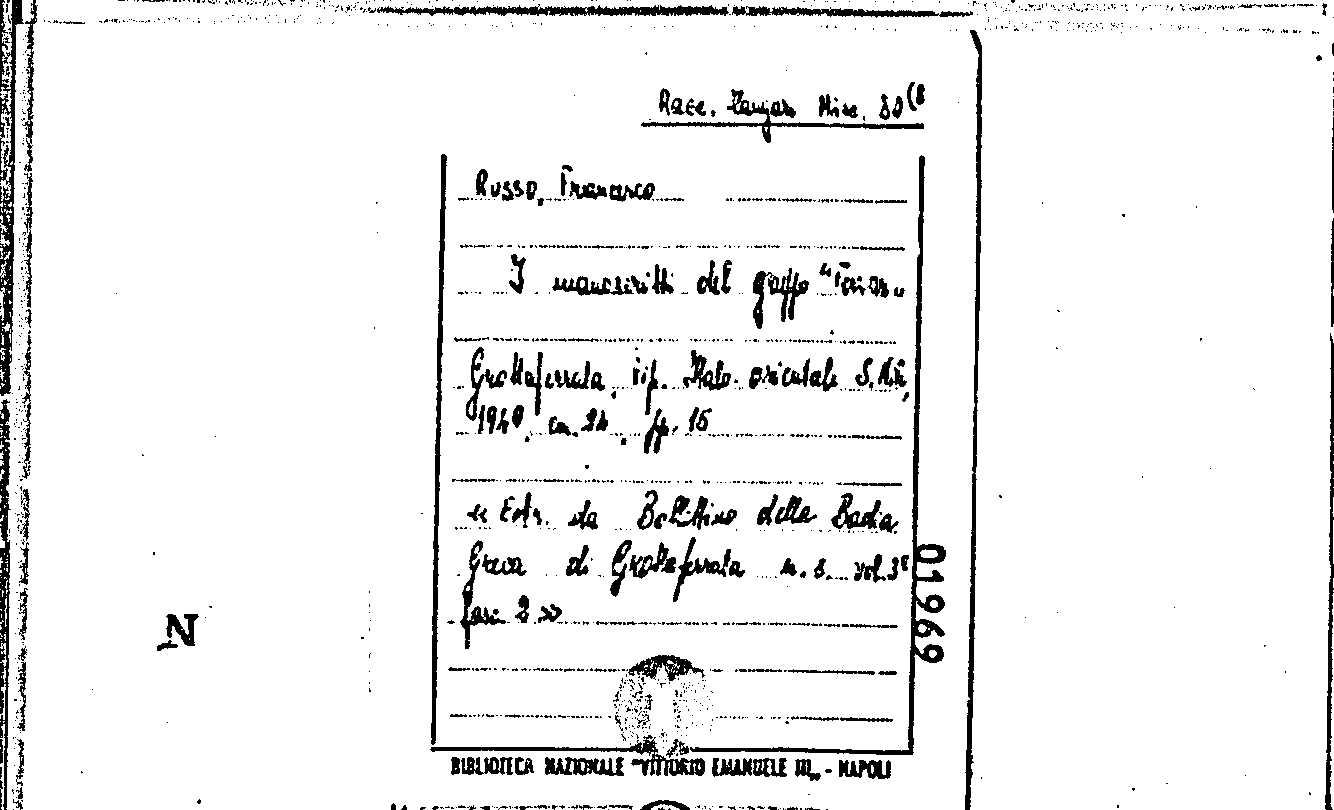 Race. Zangari Misc. 30(8
Russo, Francesco
I manoscritti del gruppo "Ferrar„
Grottaferrata, tip. Italo-orientale S. Nilo,
1949, cm. 24, pp. 15
« Estr. da Bollettino della Badia
Greca di Grottaferrata n. s. vol. 3º
fasc. 2 »
01969
N
BIBLIOTECA NAZIONALE "VITTORIO EMANUELE III„ - NAPOLI